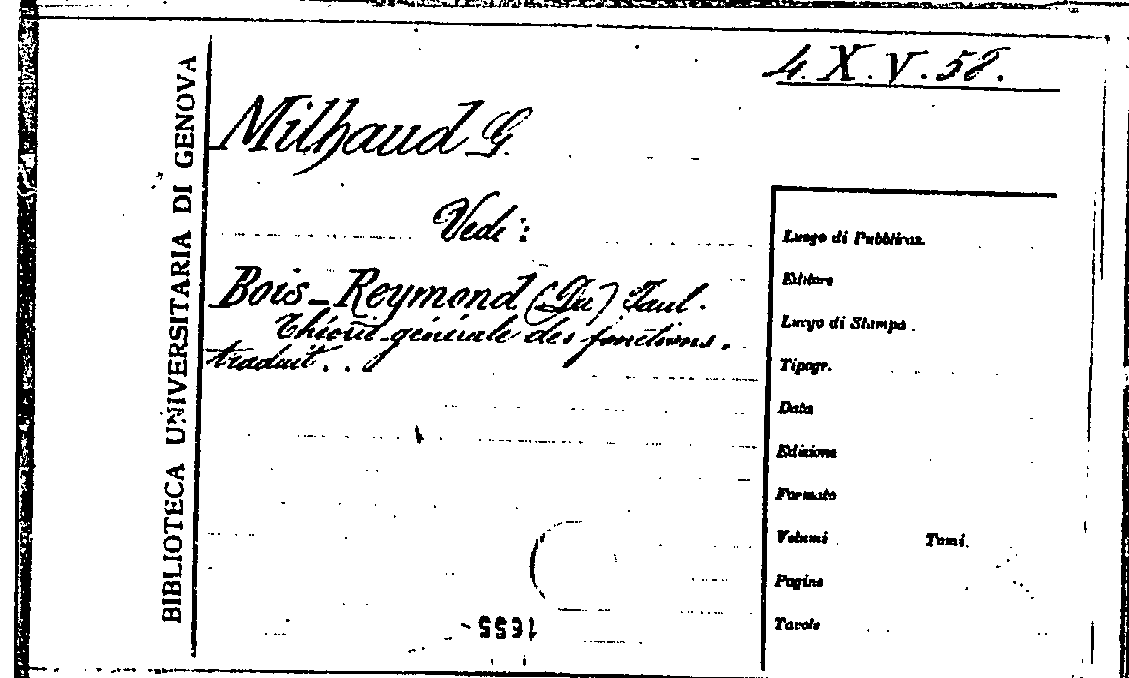 4. X. V. 58.
BIBLIOTECA UNIVERSITARIA DI GENOVA
Milhaud G.
Vedi:
Bois-Reymond (Du) Paul.
Théorie générale des fonctions.
traduit. . .
Luogo di Pubblicaz.
Editore
Luogo di Stampa.
Tipogr.
Data
Edizione
Formato
Volumi Tomi.
Pagine
Tavole